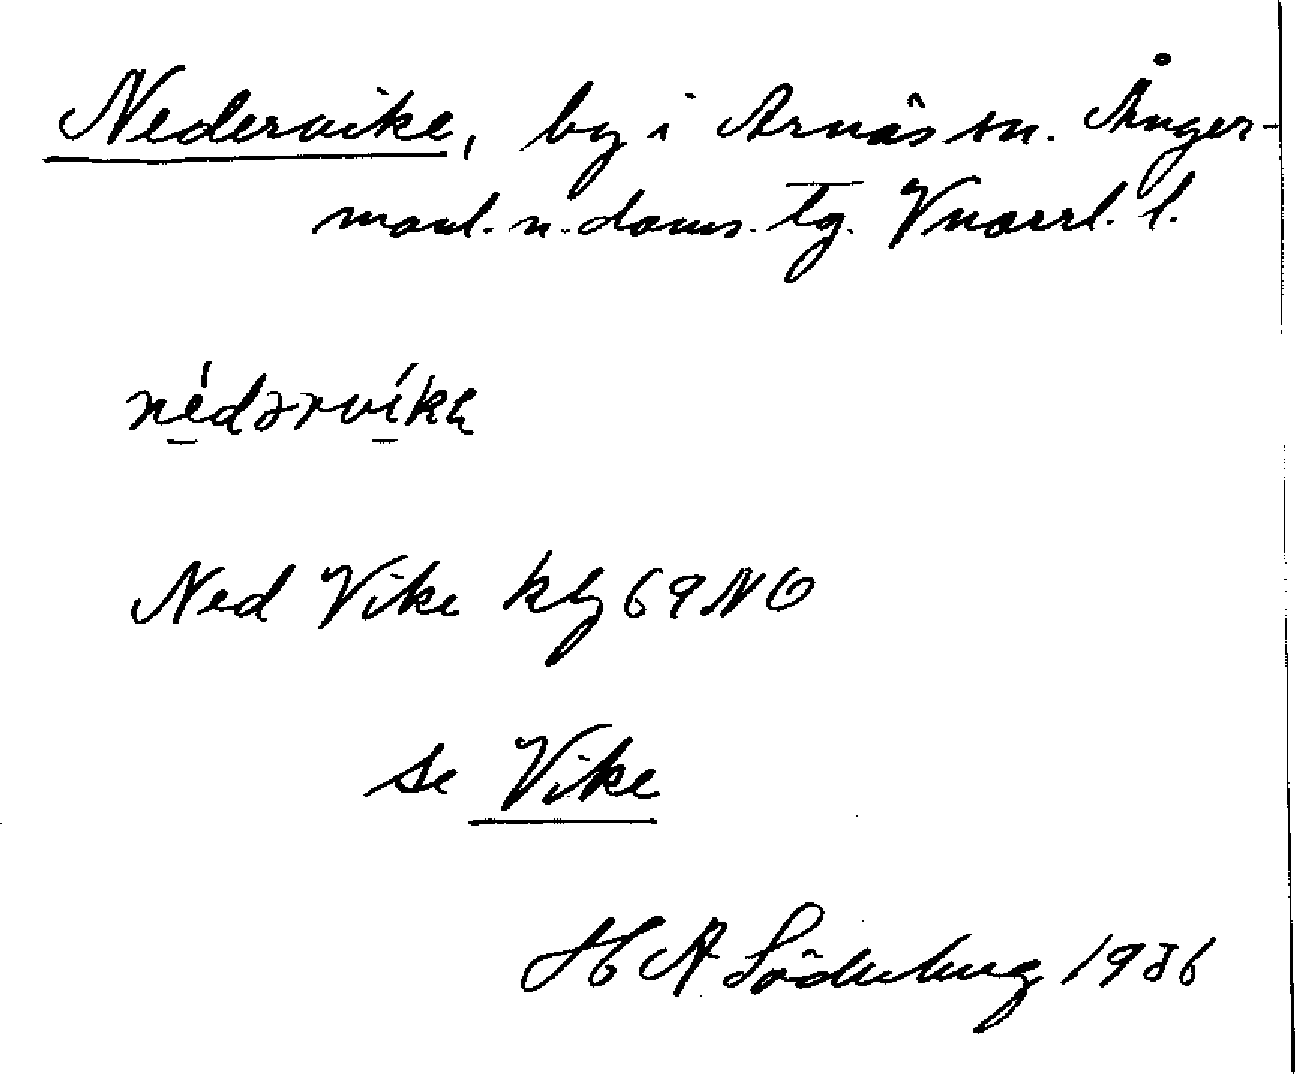 Nedervike, by i Arnäs sn. Ånger-
manl. n. doms. tg. Vnorrl. l.
nédərvíkɐ
Ned Vike kbl 69 NO
se Vike
H A Söderberg 1936